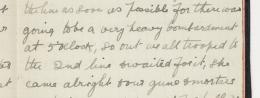 the line as soon as possible for there was
going to be a very heavy bombarsment
at 5 o'clock, so out we all trooped to
the 2nd line & waited for it, she
came alright our guns & mortars